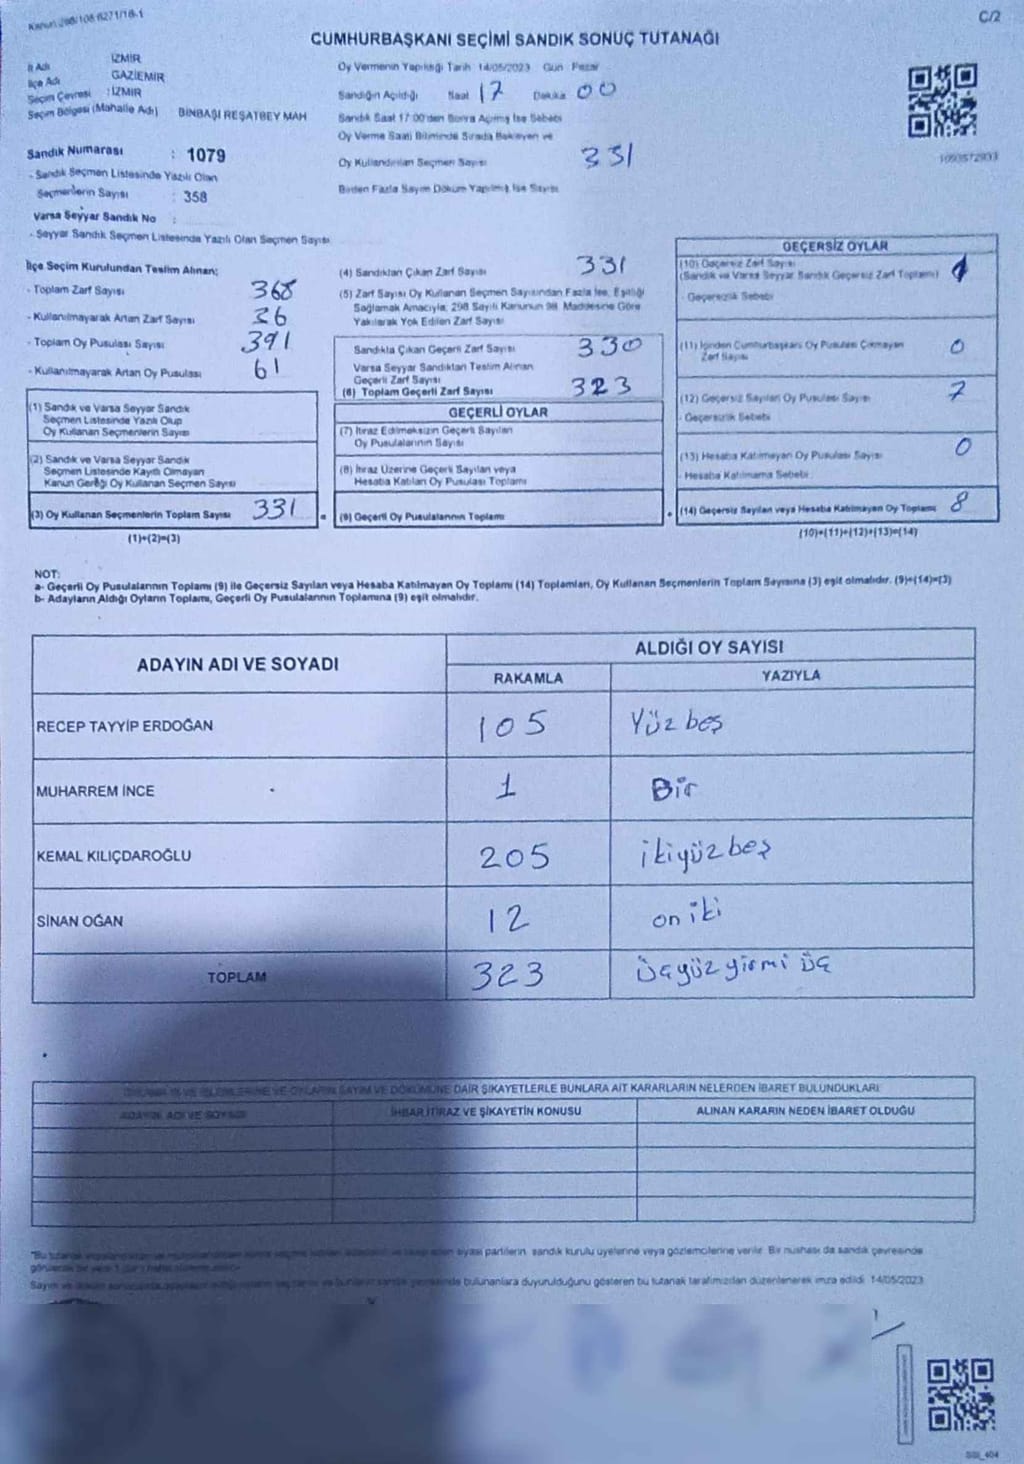 C/2
CUMHURBAŞKANI SEÇİMİ SANDIK SONUÇ TUTANAĞI
İl Adı İZMİR
İlçe Adı GAZİEMİR
Seçim Çevresi : İZMİR
Seçim Bölgesi (Mahalle Adı) BİNBAŞI REŞATBEY MAH
Sandık Numarası : 1079
- Sandık Seçmen Listesinde Yazılı Olan
Seçmenlerin Sayısı : 358
Varsa Seyyar Sandık No :
- Seyyar Sandık Seçmen Listesinde Yazılı Olan Seçmen Sayısı
Oy Vermenin Yapıldığı Tarih 14/05/2023 Gün : Pazar
Sandığın Açıldığı Saat 17 Dakika 00
Sandık Saat 17:00'den Sonra Açılmış İse Sebebi
Oy Verme Saati Bitiminde Sırada Bekleyen ve
Oy Kullandırılan Seçmen Sayısı 331
Birden Fazla Sayım Döküm Yapılmış İse Sayısı
1093572933
İlçe Seçim Kurulundan Teslim Alınan:
- Toplam Zarf Sayısı 368
- Kullanılmayarak Artan Zarf Sayısı 36
- Toplam Oy Pusulası Sayısı 391
- Kullanılmayarak Artan Oy Pusulası 61
(1) Sandık ve Varsa Seyyar Sandık
Seçmen Listesinde Yazılı Olup
Oy Kullanan Seçmenlerin Sayısı
(2) Sandık ve Varsa Seyyar Sandık
Seçmen Listesinde Kayıtlı Olmayan
Kanun Gereği Oy Kullanan Seçmen Sayısı
(3) Oy Kullanan Seçmenlerin Toplam Sayısı 331 =
(1)+(2)=(3)
(4) Sandıktan Çıkan Zarf Sayısı 331
(5) Zarf Sayısı Oy Kullanan Seçmen Sayısından Fazla İse, Eşitliği
Sağlamak Amacıyla; 298 Sayılı Kanunun 98. Maddesine Göre
Yakılarak Yok Edilen Zarf Sayısı
Sandıkta Çıkan Geçerli Zarf Sayısı 330
Varsa Seyyar Sandıktan Teslim Alınan
Geçerli Zarf Sayısı
(6) Toplam Geçerli Zarf Sayısı 323
GEÇERLİ OYLAR
(7) İtiraz Edilmeksizin Geçerli Sayılan
Oy Pusulalarının Sayısı
(8) İtiraz Üzerine Geçerli Sayılan veya
Hesaba Katılan Oy Pusulası Toplamı
(9) Geçerli Oy Pusulalarının Toplamı +
GEÇERSİZ OYLAR
(10) Geçersiz Zarf Sayısı
(Sandık ve Varsa Seyyar Sandık Geçersiz Zarf Toplamı) 1
- Geçersizlik Sebebi
(11) İçinden Cumhurbaşkanı Oy Pusulası Çıkmayan
Zarf Sayısı 0
(12) Geçersiz Sayılan Oy Pusulası Sayısı 7
- Geçersizlik Sebebi
(13) Hesaba Katılmayan Oy Pusulası Sayısı 0
- Hesaba Katılmama Sebebi
(14) Geçersiz Sayılan veya Hesaba Katılmayan Oy Toplamı 8
(10)+(11)+(12)+(13)=(14)
NOT:
a- Geçerli Oy Pusulalarının Toplamı (9) ile Geçersiz Sayılan veya Hesaba Katılmayan Oy Toplamı (14) Toplamları, Oy Kullanan Seçmenlerin Toplam Sayısına (3) eşit olmalıdır. (9)+(14)=(3)
b- Adayların Aldığı Oyların Toplamı, Geçerli Oy Pusulalarının Toplamına (9) eşit olmalıdır.
ADAYIN ADI VE SOYADI
ALDIĞI OY SAYISI
RAKAMLA YAZIYLA
RECEP TAYYİP ERDOĞAN 105 Yüz beş
MUHARREM İNCE 1 Bir
KEMAL KILIÇDAROĞLU 205 ikiyüz beş
SİNAN OĞAN 12 on iki
TOPLAM 323 üçyüz yirmi üç
OYLARIN SAYIM VE DÖKÜMÜNE DAİR ŞİKAYETLERLE BUNLARA AİT KARARLARIN NELERDEN İBARET BULUNDUKLARI
ADAYIN ADI VE SOYADI İHBAR İTİRAZ VE ŞİKAYETİN KONUSU ALINAN KARARIN NEDEN İBARET OLDUĞU
siyasi partilerin, sandık kurulu üyelerine veya gözlemcilerine verilir. Bir nüshası da sandık çevresinde
bulunanlara duyurulduğunu gösteren bu tutanak tarafımızdan düzenlenerek imza edildi. 14/05/2023